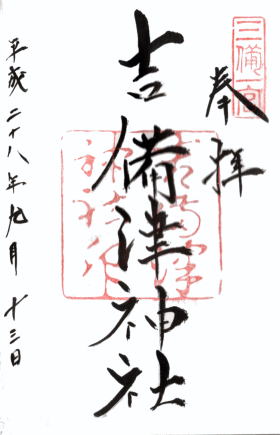 三備一宮
奉拝
吉備津神社
平成二十八年九月十三日